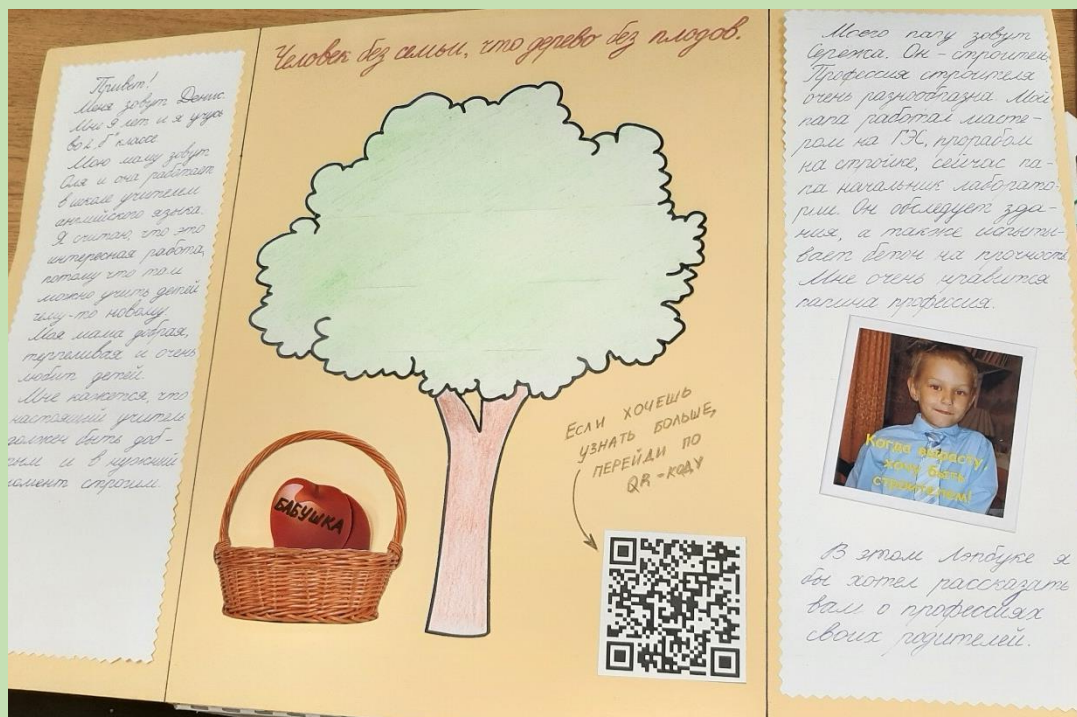 Привет!
Меня зовут Денис.
Мне 9 лет и я учусь
во 2 „Б" классе
Мою маму зовут
Оля и она работает
в школе учителем
английского языка.
Я считаю, что это
интересная работа,
потому что там
можно учить детей
чему-то новому.
Моя мама добрая,
терпеливая и очень
любит детей
Мне кажется, что
настоящий учитель
должен быть доб-
рым и в нужный
момент строгим.
Человек без семьи, что дерево без плодов.
БАБУШКА
ЕСЛИ ХОЧЕШЬ
УЗНАТЬ БОЛЬШЕ,
ПЕРЕЙДИ ПО
QR-КОДУ
Моего папу зовут
Сережа. Он - строитель.
Профессия строителя
очень разнообразна. Мой
папа работал масте-
ром на ГЭС, прорабом
на стройке, сейчас па-
па начальник лаборато-
рии. Он обследует зда-
ния, а также испыты-
вает бетон на прочность.
Мне очень нравится
папина профессия.
Когда вырасту,
хочу быть
строителем!
В этом Лэпбуке я
бы хотел рассказать
вам о профессиях
своих родителей.